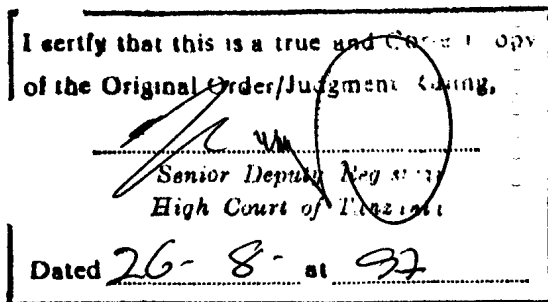 I certify that this is a true and Correct Copy
of the Original Order/Judgment Ruling,
Senior Deputy Registrar
High Court of Tanzania
Dated 26- 8- at 97